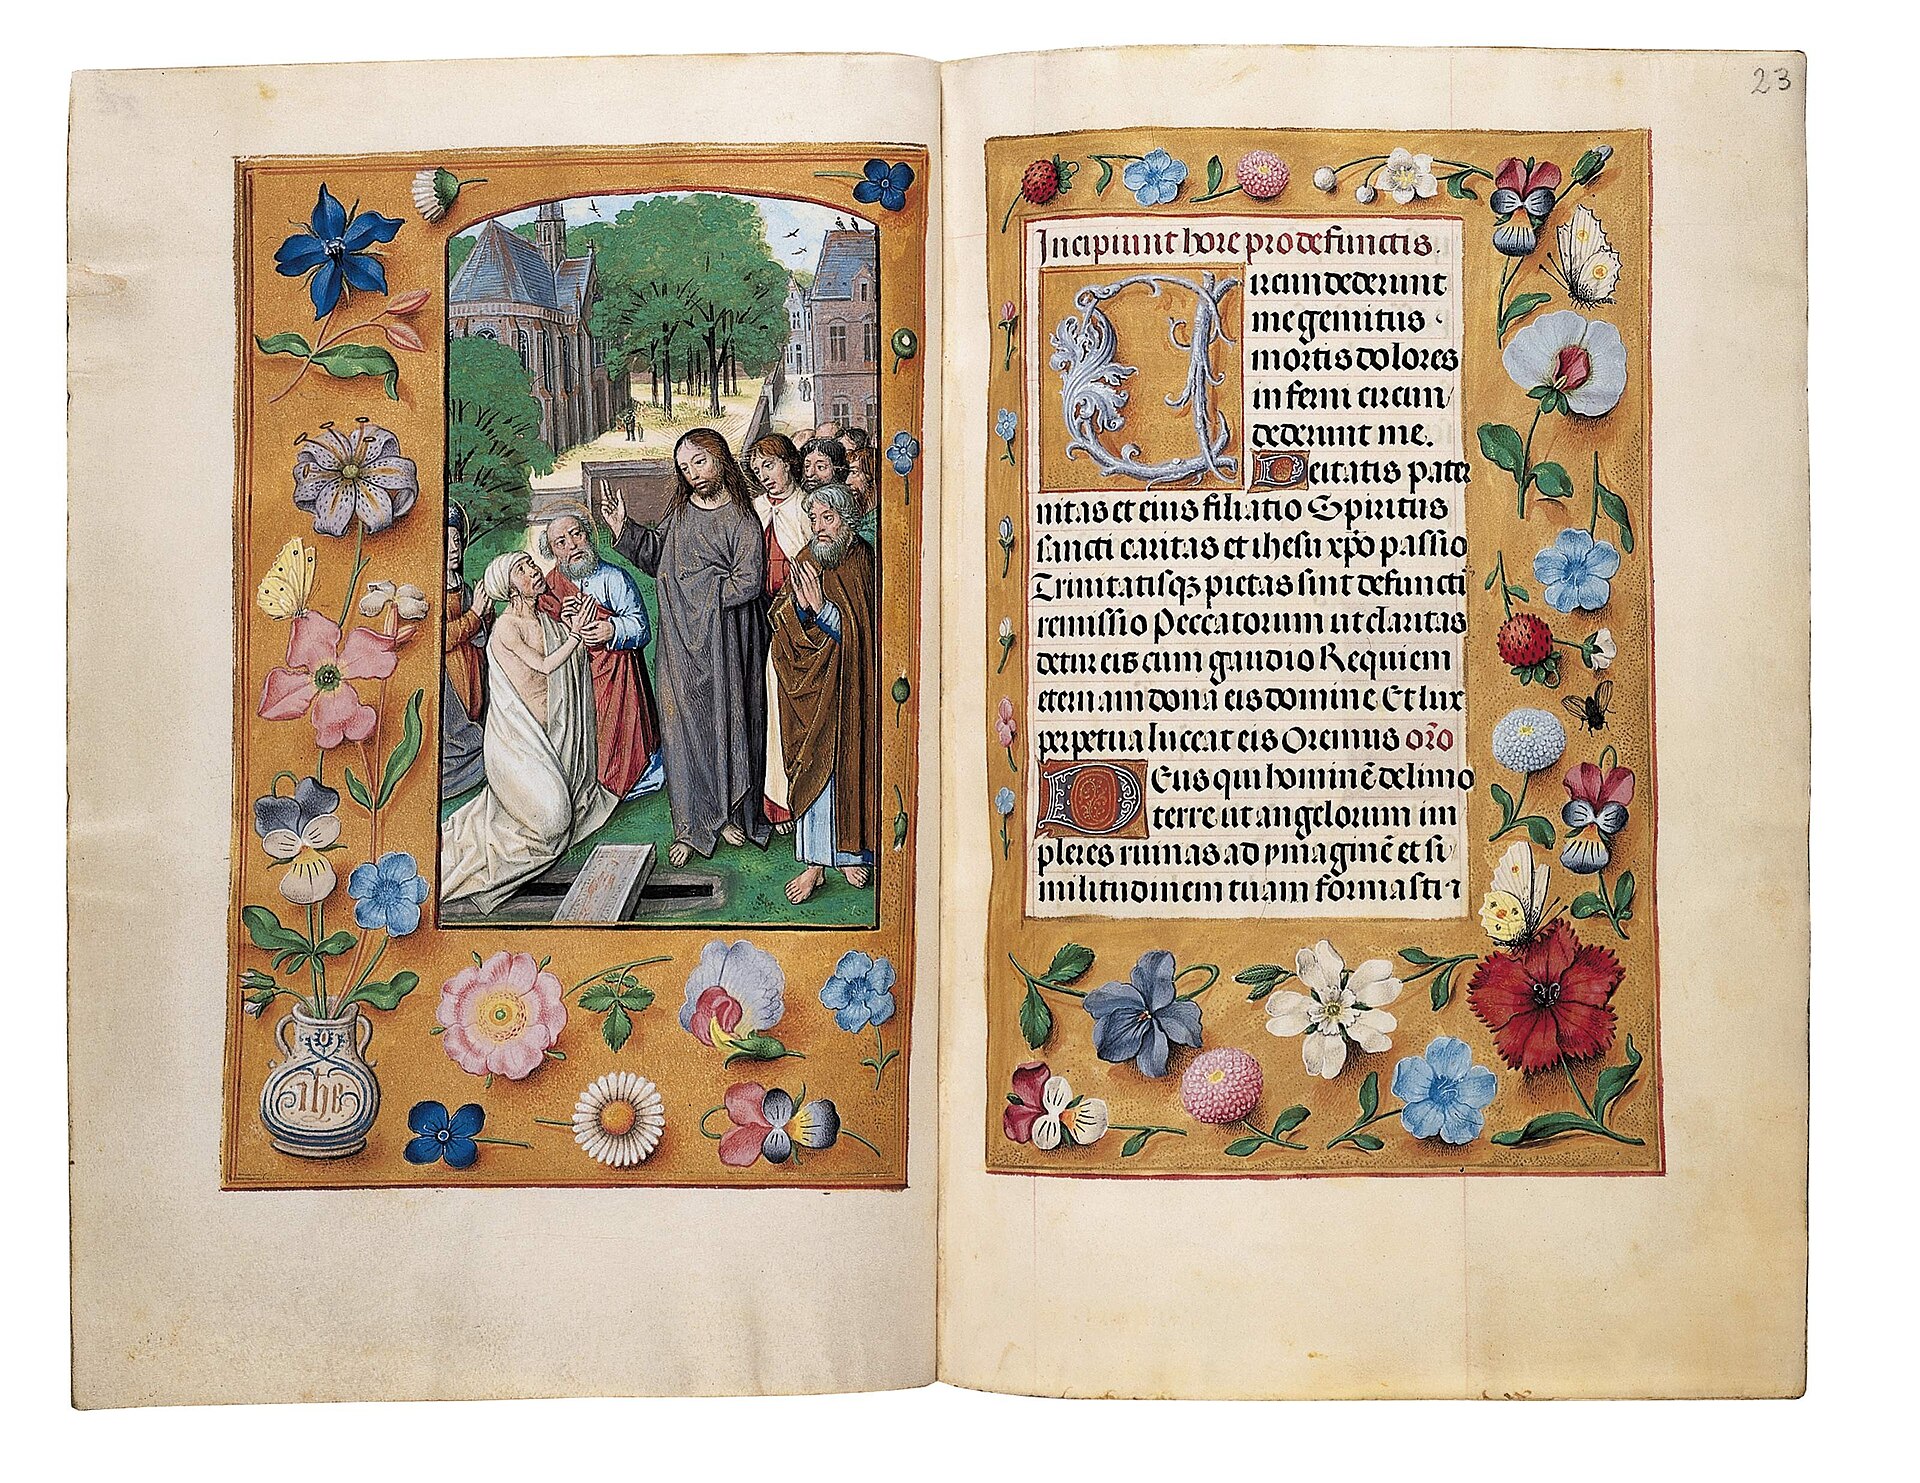 ihs
23
Incipiunt hore pro defunctis.
Circumdederunt
me gemitus
mortis dolores
inferni circum
dederunt me.
Deitatis pater
nitas et eius filiatio Spiritus
sancti caritas et ihesu xp̄o passio
Trinitatisqꝫ pietas sint defuncti
remissio Peccatorum ut claritas
detur eis cum gaudio Requiem
eternam dona eis domine Et lux
perpetua luceat eis Oremus or̄o
Deus qui hominē de limo
terre ut angelorum im
pleres ruinas ad ymaginē et si
militudinem tuam formasti ⁊